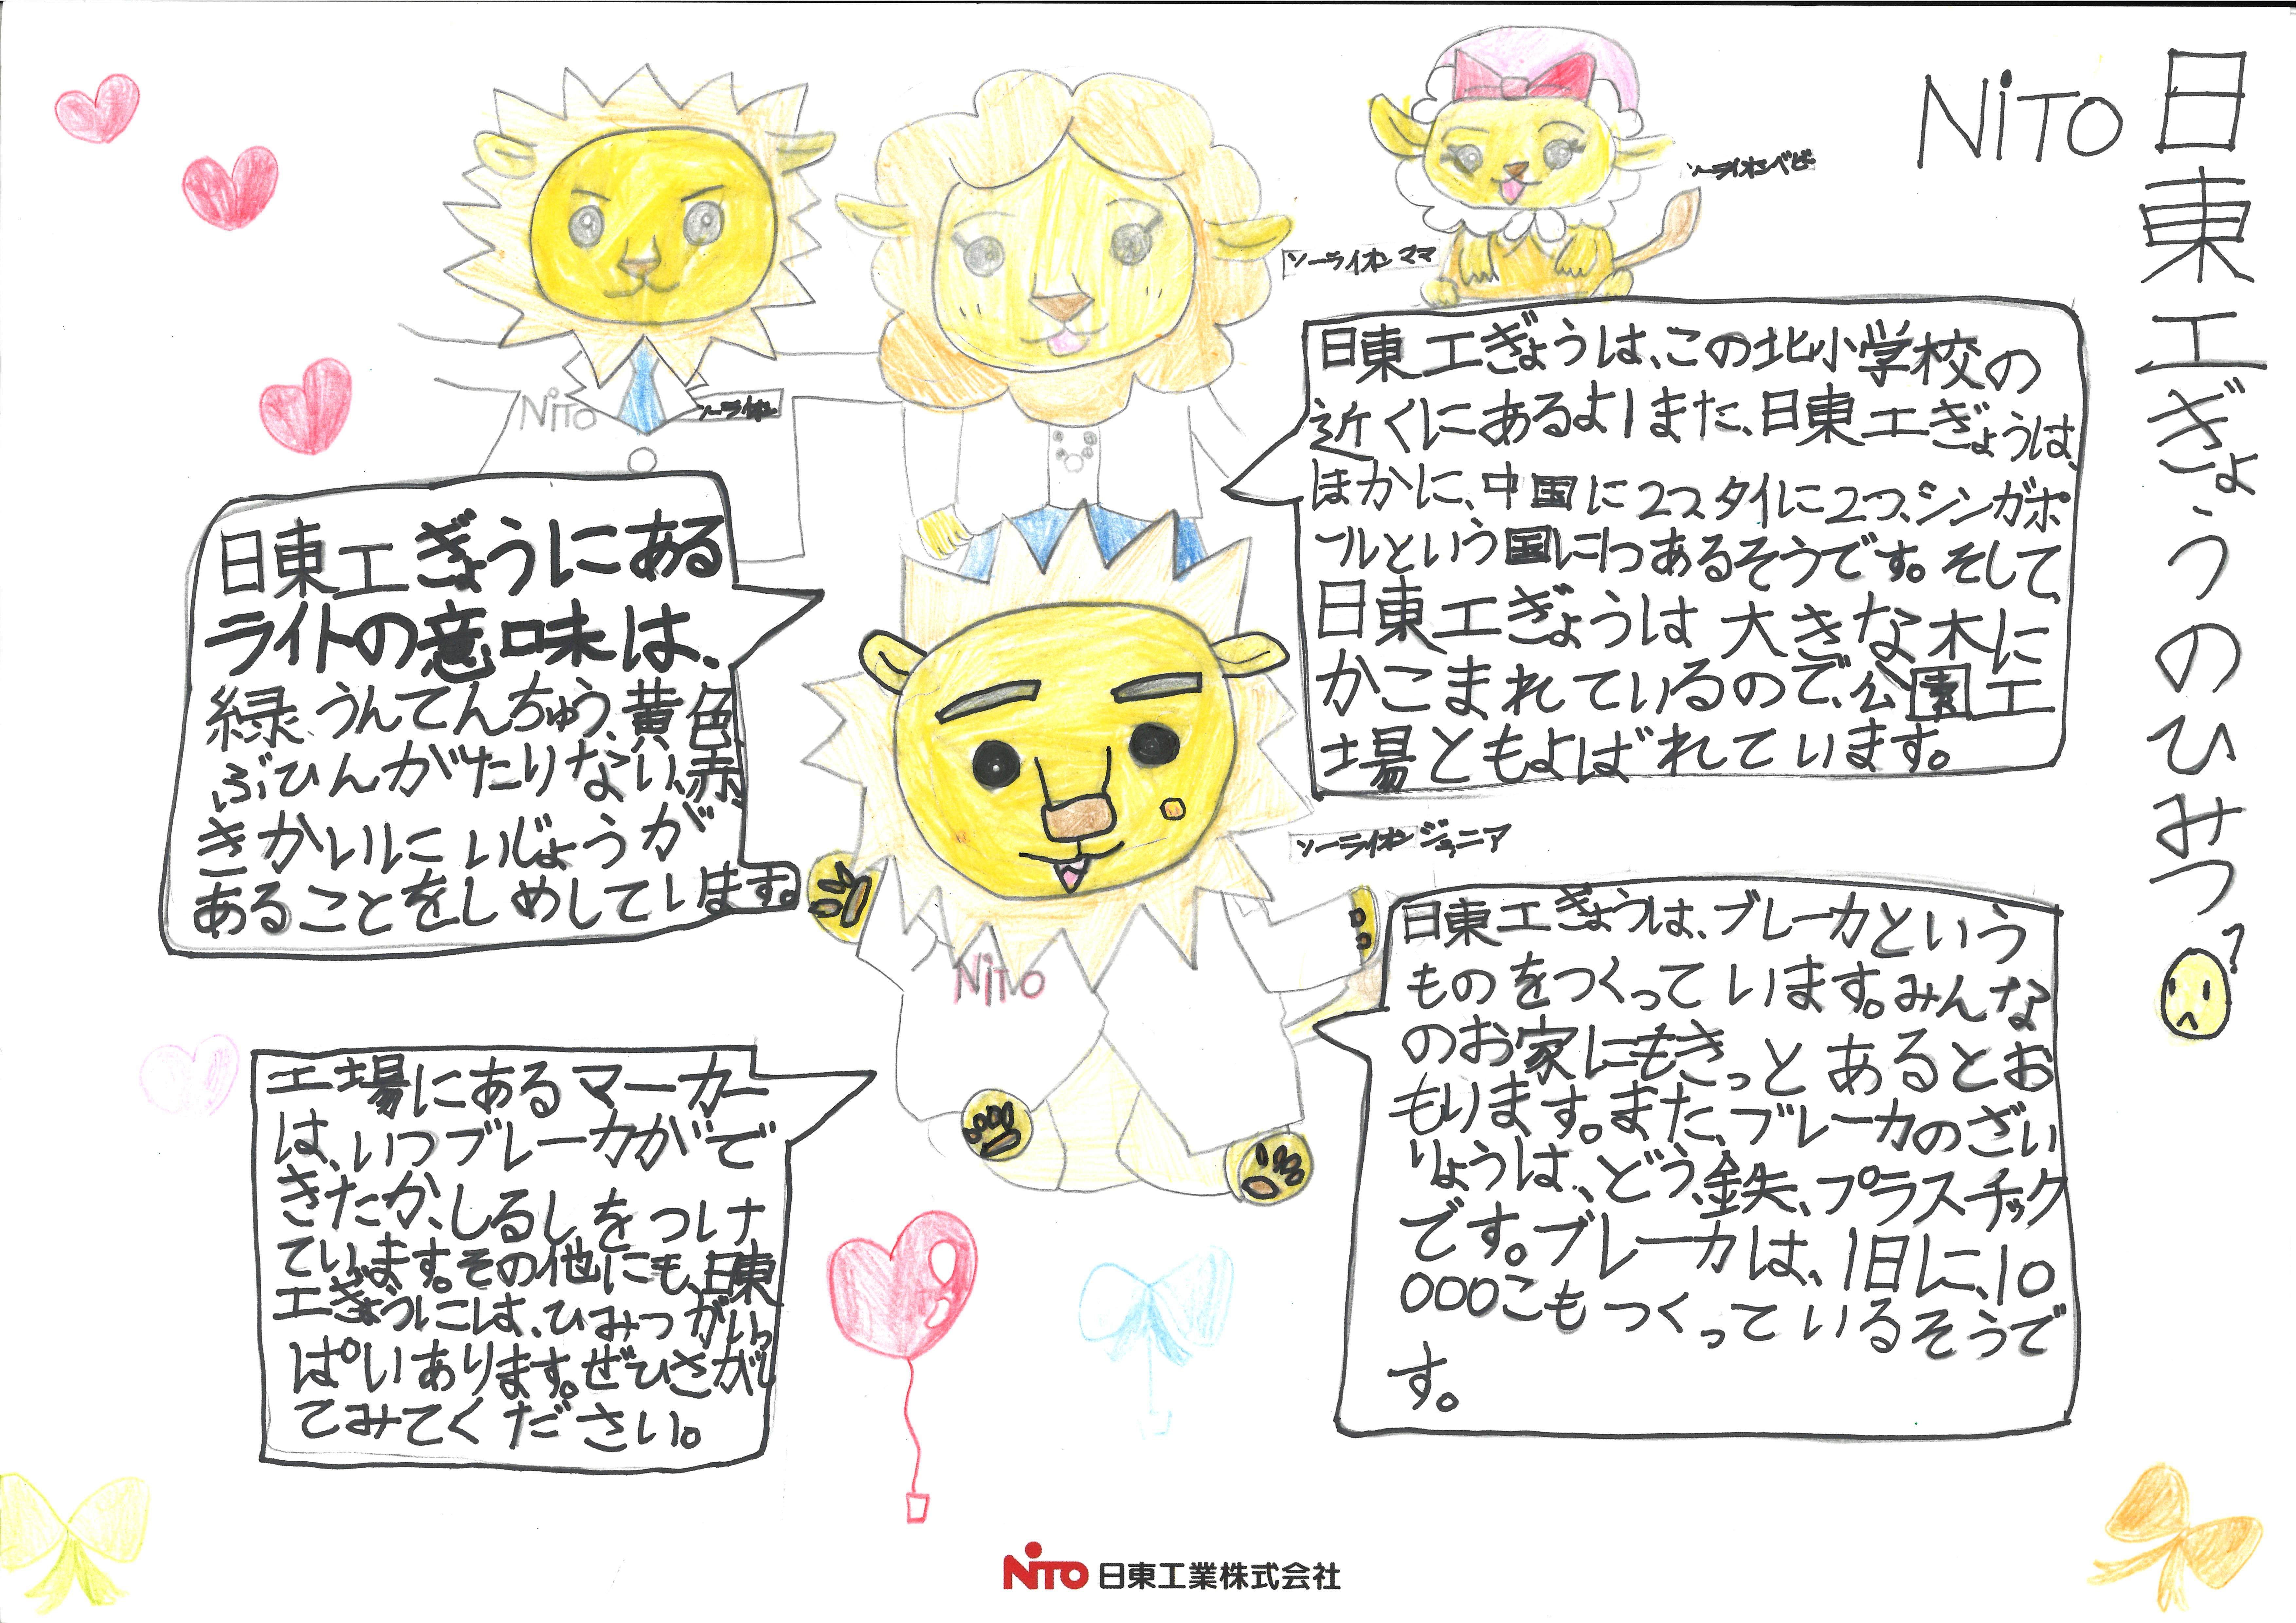 日東工ぎょうのひみつ?
NiTO
ソーライオンベビー
ソーライオンママ
NiTO
ソーライオン
日東工ぎょうは、この北小学校の
近くにあるよ!また、日東工ぎょうは、
ほかに、中国に2つ、タイに2つ、シンガポ
ールという国に1つあるそうです。そして、
日東工ぎょうは大きな木に
かこまれているので、公園工
場ともよばれています。
日東工ぎょうにある
ライトの意味は、
緑、うんてんちゅう、黄色、
ぶひんがたりない、赤、
きかいにいじょうが
あることをしめしています。
ソーライオンジュニア
NiTO
日東工ぎょうは、ブレーカという
ものをつくっています。みんな
のお家にもきっとあるとお
もります。また、ブレーカのざい
りょうは、どう、鉄、プラスチック
です。ブレーカは、1日に、10
000こもつくっているそうで
す。
工場にあるマーカー
は、いつブレーカがで
きたか、しるしをつけ
ています。その他にも、日東
工ぎょうには、ひみつがいっ
ぱいあります。ぜひさがし
てみてください。
NITO 日東工業株式会社